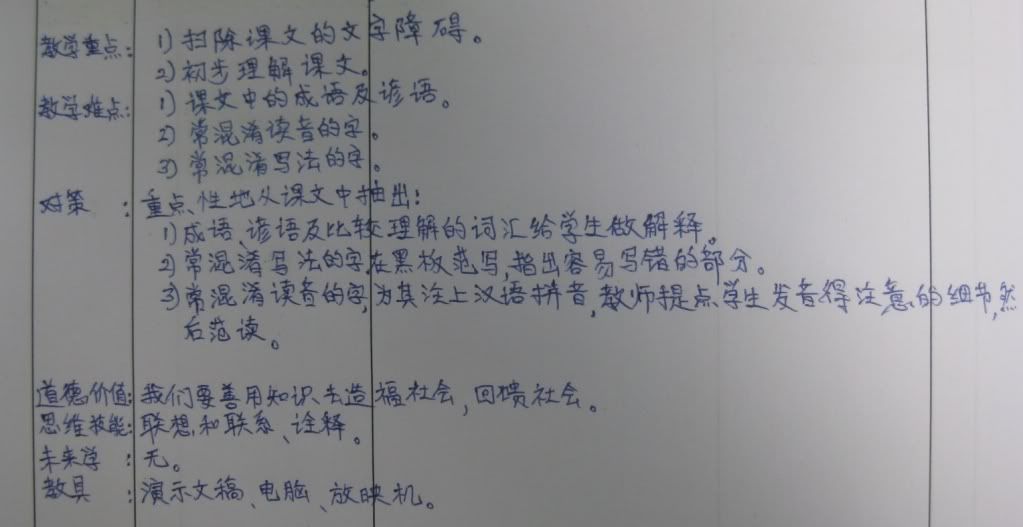 教学重点: 1) 扫除课文的文字障碍。
2) 初步理解课文。
教学难点: 1) 课文中的成语及谚语。
2) 常混淆读音的字。
3) 常混淆写法的字。
对策 : 重点性地从课文中抽出:
1) 成语、谚语及比较理解的词汇给学生做解释。
2) 常混淆写法的字,在黑板范写,指出容易写错的部分。
3) 常混淆读音的字,为其注上汉语拼音,教师提点学生发音得注意的细节,然
后范读。
道德价值: 我们要善用知识去造福社会,回馈社会。
思维技能: 联想和联系、诠释。
未来学 : 无。
教具 : 演示文稿、电脑、放映机。